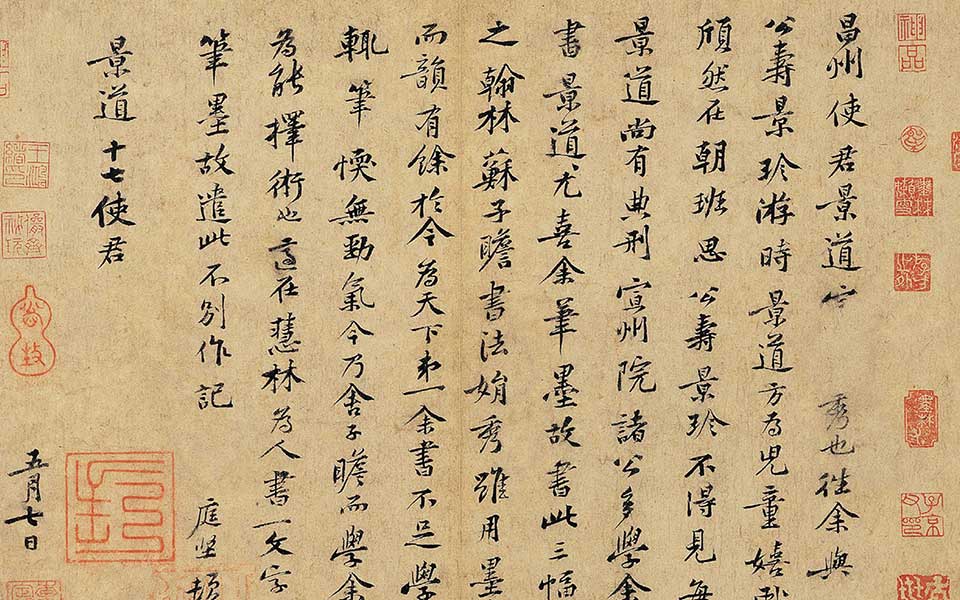 昌州使君景道 秀也往余與
公壽景珍游時景道方為兒童嬉
頎然在朝班思公壽景珍不得見每
景道尚有典刑宣州院諸公多學余
書景道尤喜余筆墨故書此三幅
之翰林蘇子瞻書法娟秀雖用墨
而韻有餘於今為天下第一余書不足學
輒筆愞無勁氣今乃舍子瞻而學余
為能擇術也適在慧林為人書一文字
筆墨故遣此不別作記
庭堅頓
景道十七使君
五月七日
神品